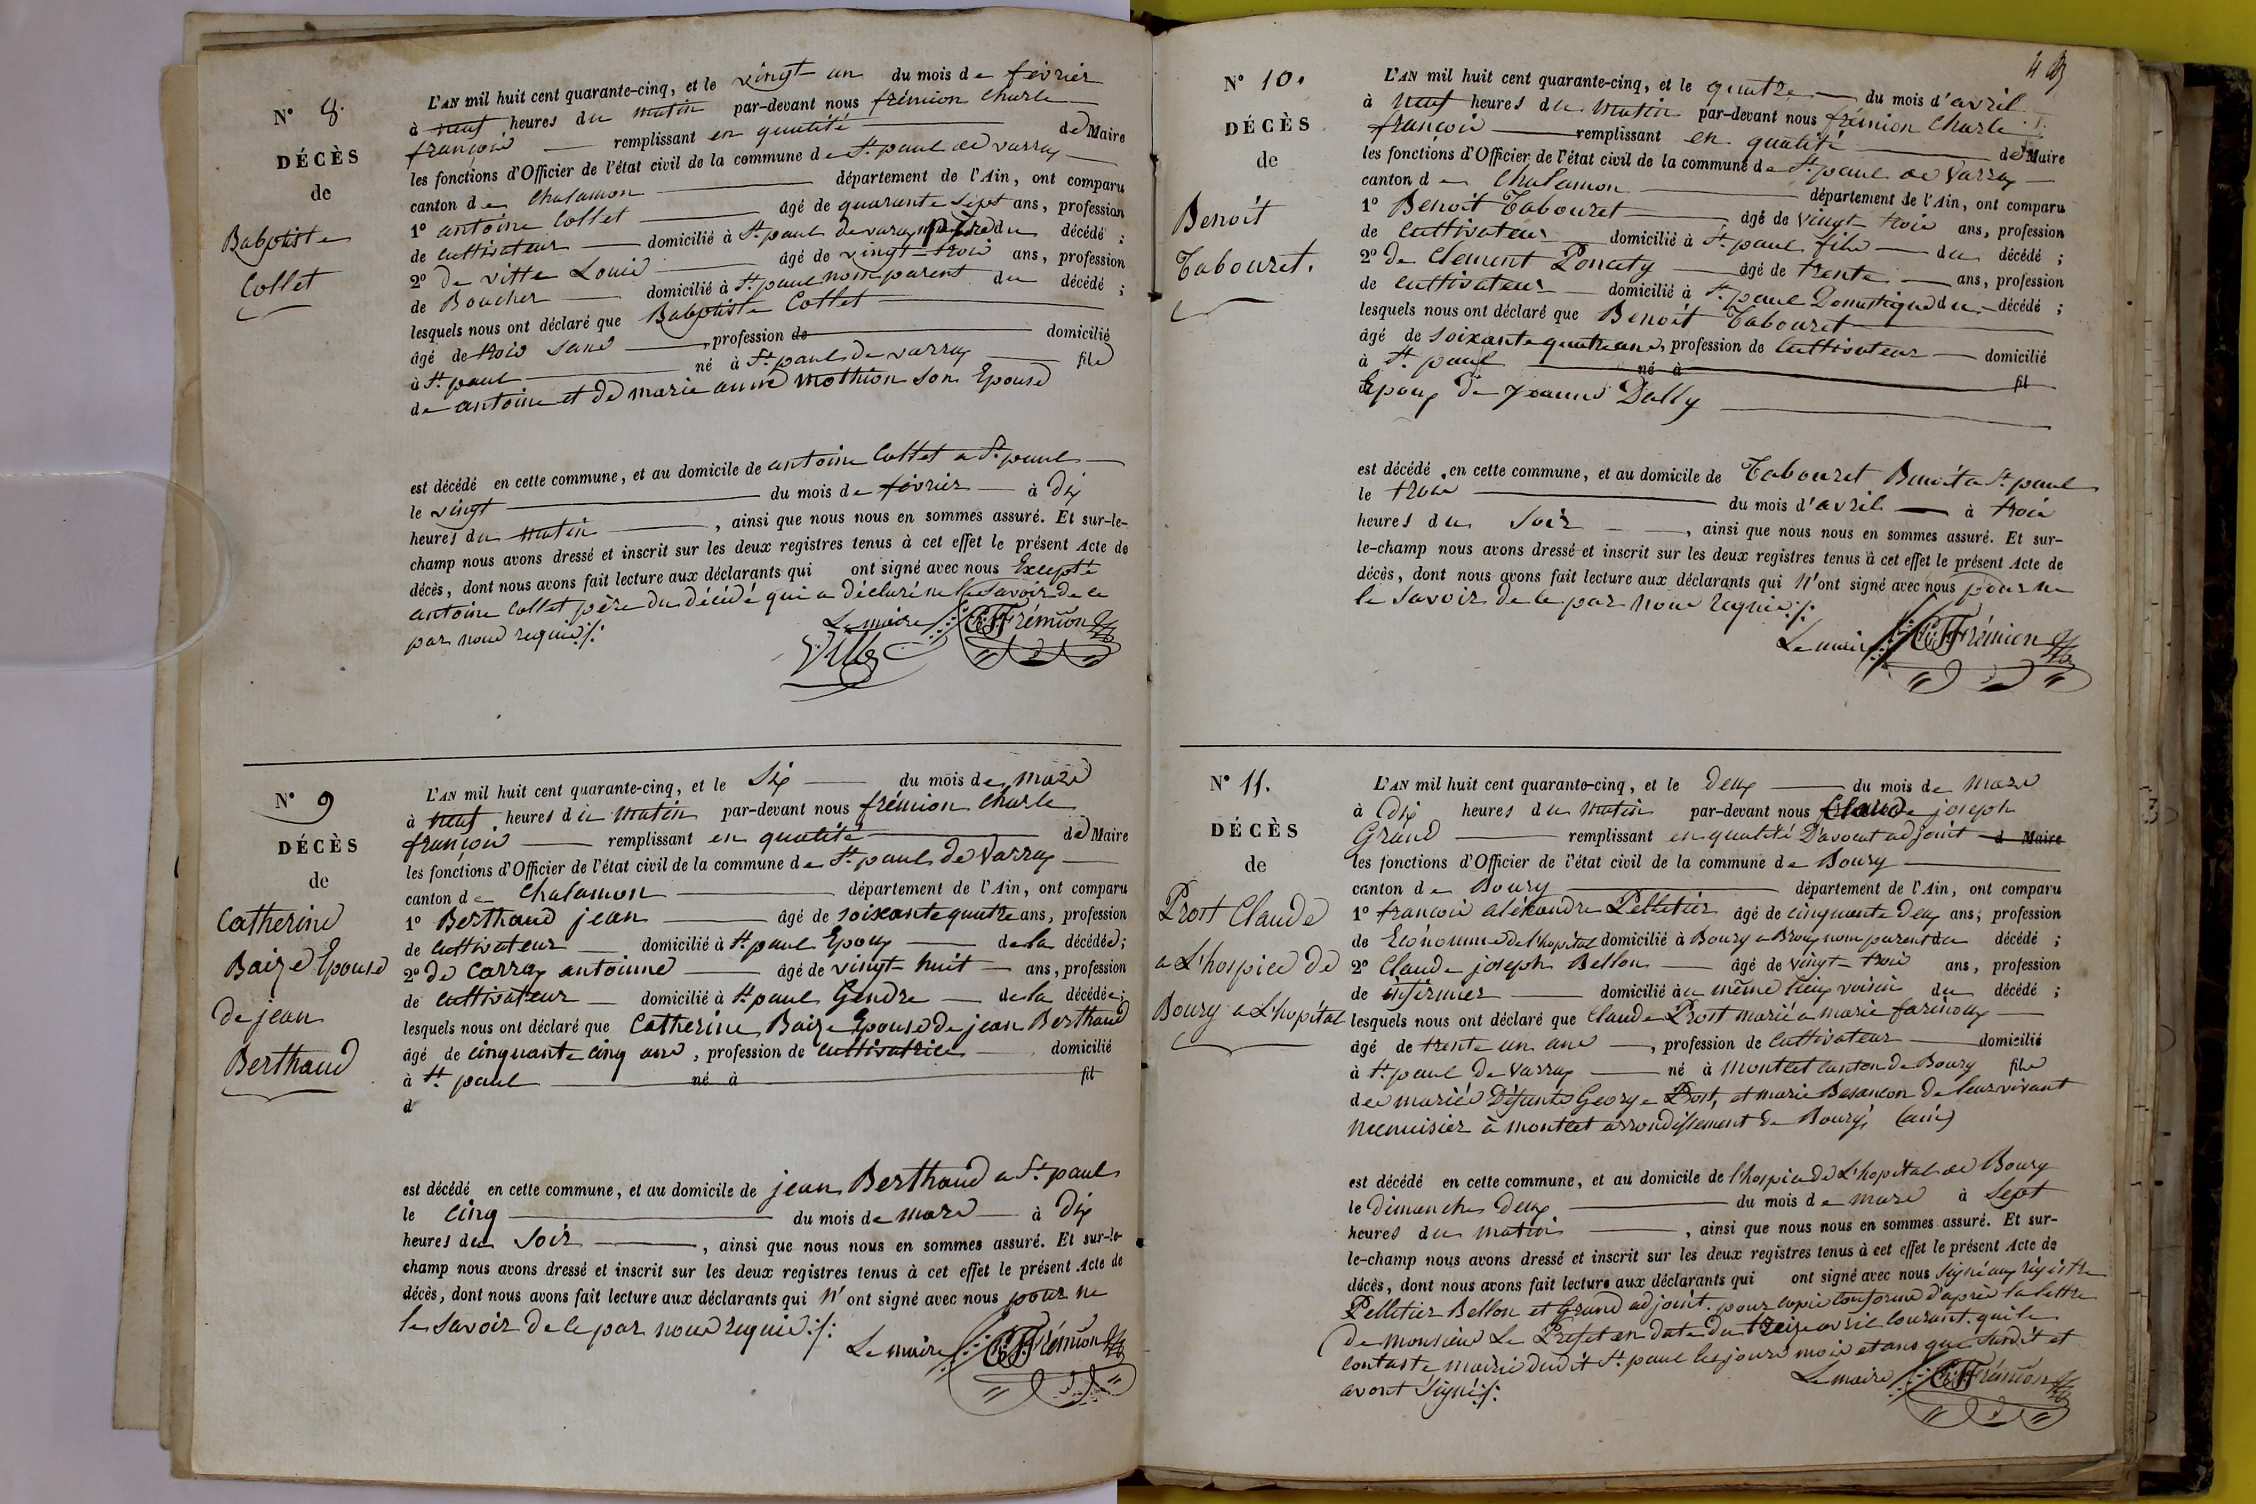 N° 8.
DÉCÈS
de
Babptiste
Collet
L'AN mil huit cent quarante-cinq, et le vingt un du mois de février
à neuf heures du matin par-devant nous frémion Charle
françois remplissant en qualité de Maire
les fonctions d'Officier de l'état civil de la commune de St paul de varax
canton de Chalamon département de l'Ain, ont comparu
1° antoine Collet âgé de quarante sept ans, profession
de cultivateur domicilié à St paul de varax père du décédé ;
2° de vitte Louis âgé de vingt-trois ans, profession
de Boucher domicilié à St paul non parent du décédé ;
lesquels nous ont déclaré que Babptiste Collet
âgé de trois ans profession de domicilié
à St paul né à St paul de varax fils
de antoine et de marie anne mothion son Epouse
est décédé en cette commune, et au domicile de antoine Collet a St paul
le vingt du mois de février à dix
heures du matin , ainsi que nous nous en sommes assuré. Et sur-le-
champ nous avons dressé et inscrit sur les deux registres tenus à cet effet le présent Acte de
décès, dont nous avons fait lecture aux déclarants qui ont signé avec nous Excepté
antoine Collet père du décédé qui a déclaré ne le savoir de ce
par nous requis
Le maire Ch F Frémion
N° 9
DÉCÈS
de
Catherine
Baize Epouse
de jean
Berthaud
L'AN mil huit cent quarante-cinq, et le Six du mois de mars
à neuf heures du matin par-devant nous frémion Charle
françois remplissant en qualité de Maire
les fonctions d'Officier de l'état civil de la commune de St paul de Varax
canton de Chalamon département de l'Ain, ont comparu
1° Berthaud jean âgé de soixante quatre ans, profession
de cultivateur domicilié à St paul Epoux de la décédée ;
2° de Carray antoinne âgé de vingt-huit ans, profession
de cultivateur domicilié à St paul Gendre de la décédée ;
lesquels nous ont déclaré que Catherine Baize Epouse de jean Berthaud
âgé de cinquante cinq ans, profession de cultivatrice domicilié
à St paul né à fil
d
est décédé en cette commune, et au domicile de jean Berthaud a St paul
le cinq du mois de mars à dix
heures du Soir , ainsi que nous nous en sommes assuré. Et sur-le-
champ nous avons dressé et inscrit sur les deux registres tenus à cet effet le présent Acte de
décès, dont nous avons fait lecture aux déclarants qui n'ont signé avec nous pour ne
le savoir de ce par nous requis
Le maire Ch F Frémion
N° 10.
DÉCÈS
de
Benoit
Tabouret.
L'AN mil huit cent quarante-cinq, et le quatre du mois d'avril
à neuf heures du matin par-devant nous frémion Charle
françois remplissant en qualité de Maire
les fonctions d'Officier de l'état civil de la commune de St paul de Varax
canton de Chalamon département de l'Ain, ont comparu
1° Benoit Tabouret âgé de vingt trois ans, profession
de cultivateur domicilié à St paul fils du décédé ;
2° de Clement Poncety âgé de trente ans, profession
de cultivateur domicilié à St paul Domestique du décédé ;
lesquels nous ont déclaré que Benoit Tabouret
âgé de soixante quatre ans, profession de cultivateur domicilié
à St paul né à fil
Epoux de jeanne Dally
est décédé en cette commune, et au domicile de Tabouret Benoit a St paul
le trois du mois d'avril à trois
heures du Soir , ainsi que nous nous en sommes assuré. Et sur-
le-champ nous avons dressé et inscrit sur les deux registres tenus à cet effet le présent Acte de
décès, dont nous avons fait lecture aux déclarants qui n'ont signé avec nous pour ne
le savoir de ce par nous requis
Le maire Ch F Frémion
N° 11.
DÉCÈS
de
Prost Claude
a L'hospice de
Bourg a L'hopital
L'AN mil huit cent quarante-cinq, et le deux du mois de mars
à dix heures du matin par-devant nous Claude joseph
Grand remplissant en qualité d'avocat adjoint d Maire
les fonctions d'Officier de l'état civil de la commune de Bourg
canton de Bourg département de l'Ain, ont comparu
1° françois aléxandre Pelletier âgé de cinquante deux ans, profession
de Econnome de l'hopital domicilié à Bourg a Brou non parent du décédé ;
2° Claude joseph Bellon âgé de vingt-trois ans, profession
de infirmier domicilié au même lieu voisin du décédé ;
lesquels nous ont déclaré que Claude Prost marié a marie farinoux
âgé de trente un ans , profession de cultivateur domicilié
à St paul de Varax né à Montcet canton de Bourg fils
des mariés Défunts George Prost, et marie Besancon de leur vivant
menuisier à montcet arrondissement de Bourg (ain)
est décédé en cette commune, et au domicile de l'hospice de L'hopital de Bourg
le dimanche deux du mois de mars à Sept
heures du matin , ainsi que nous nous en sommes assuré. Et sur-
le-champ nous avons dressé et inscrit sur les deux registres tenus à cet effet le présent Acte de
décès, dont nous avons fait lecture aux déclarants qui ont signé avec nous signé au régistre
Pelletier Bellon et Grand adjoint. pour copie conforme d'après la lettre
de monsieur Le Préfet en date du treize avril courant. qui le
Contaste mairie dudit St paul les jours mois et ans que susdit et
avont signé
Le maire Ch F Frémion